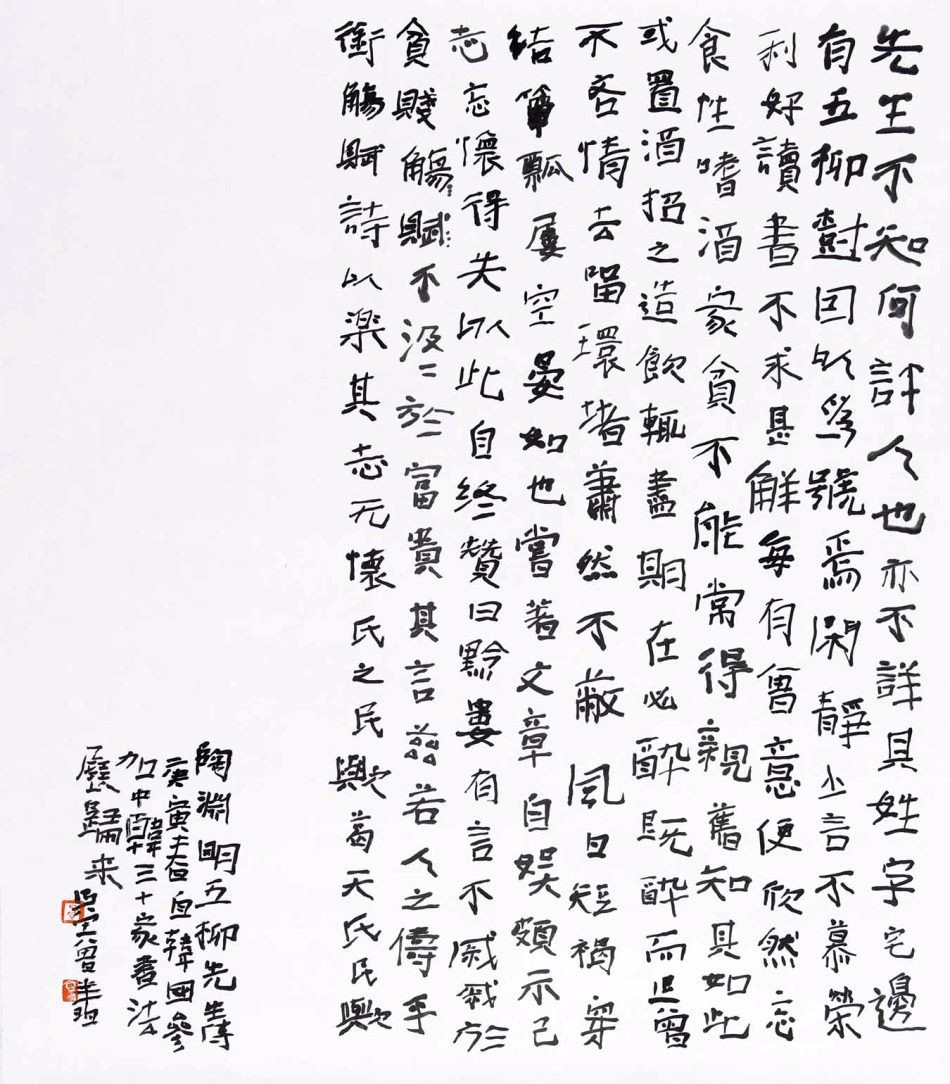 先生不知何許人也亦不詳其姓字宅邊
有五柳樹因以為號焉閑靜少言不慕榮
利好讀書不求甚解每有會意便欣然忘
食性嗜酒家貧不能常得親舊知其如此
或置酒招之造飲輒盡期在必醉既醉而退曾
不吝情去留環堵蕭然不蔽風日短褐穿
結簞瓢屢空晏如也嘗著文章自娛頗示己
志忘懷得失以此自終贊曰黔婁有言不戚戚於
貧賤觴賦不汲〻於富貴其言茲若人之儔乎
銜觴賦詩以樂其志无懷氏之民歟葛天氏民歟
陶淵明五柳先生傳
庚寅春自韓國參
加中韓三十家書法
展歸來